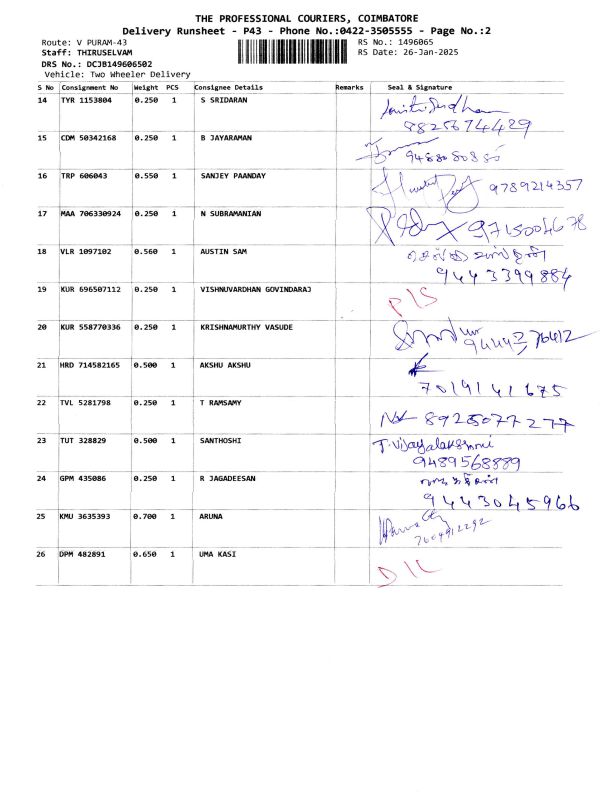 THE PROFESSIONAL COURIERS, COIMBATORE
Delivery Runsheet - P43 - Phone No.:0422-3505555 - Page No.:2
Route: V PURAM-43 RS No.: 1496065
Staff: THIRUSELVAM RS Date: 26-Jan-2025
DRS No.: DCJB149606502
Vehicle: Two Wheeler Delivery
S No Consignment No Weight PCS Consignee Details Remarks Seal & Signature
14 TYR 1153804 0.250 1 S SRIDARAN
8825674429
15 CDM 50342168 0.250 1 B JAYARAMAN
9488080880
16 TRP 606043 0.550 1 SANJEY PAANDAY 9789214357
17 MAA 706330924 0.250 1 N SUBRAMANIAN 9715004678
18 VLR 1097102 0.560 1 AUSTIN SAM
9443399884
19 KUR 696507112 0.250 1 VISHNUVARDHAN GOVINDARAJ P/S
20 KUR 558770336 0.250 1 KRISHNAMURTHY VASUDE
9444376412
21 HRD 714582165 0.500 1 AKSHU AKSHU
7019141675
22 TVL 5281798 0.250 1 T RAMSAMY 8925077277
23 TUT 328829 0.500 1 SANTHOSHI T. Vijayalakshmi
9489568889
24 GPM 435086 0.250 1 R JAGADEESAN
9443045966
25 KMU 3635393 0.700 1 ARUNA
7604912292
26 DPM 482891 0.650 1 UMA KASI D/L